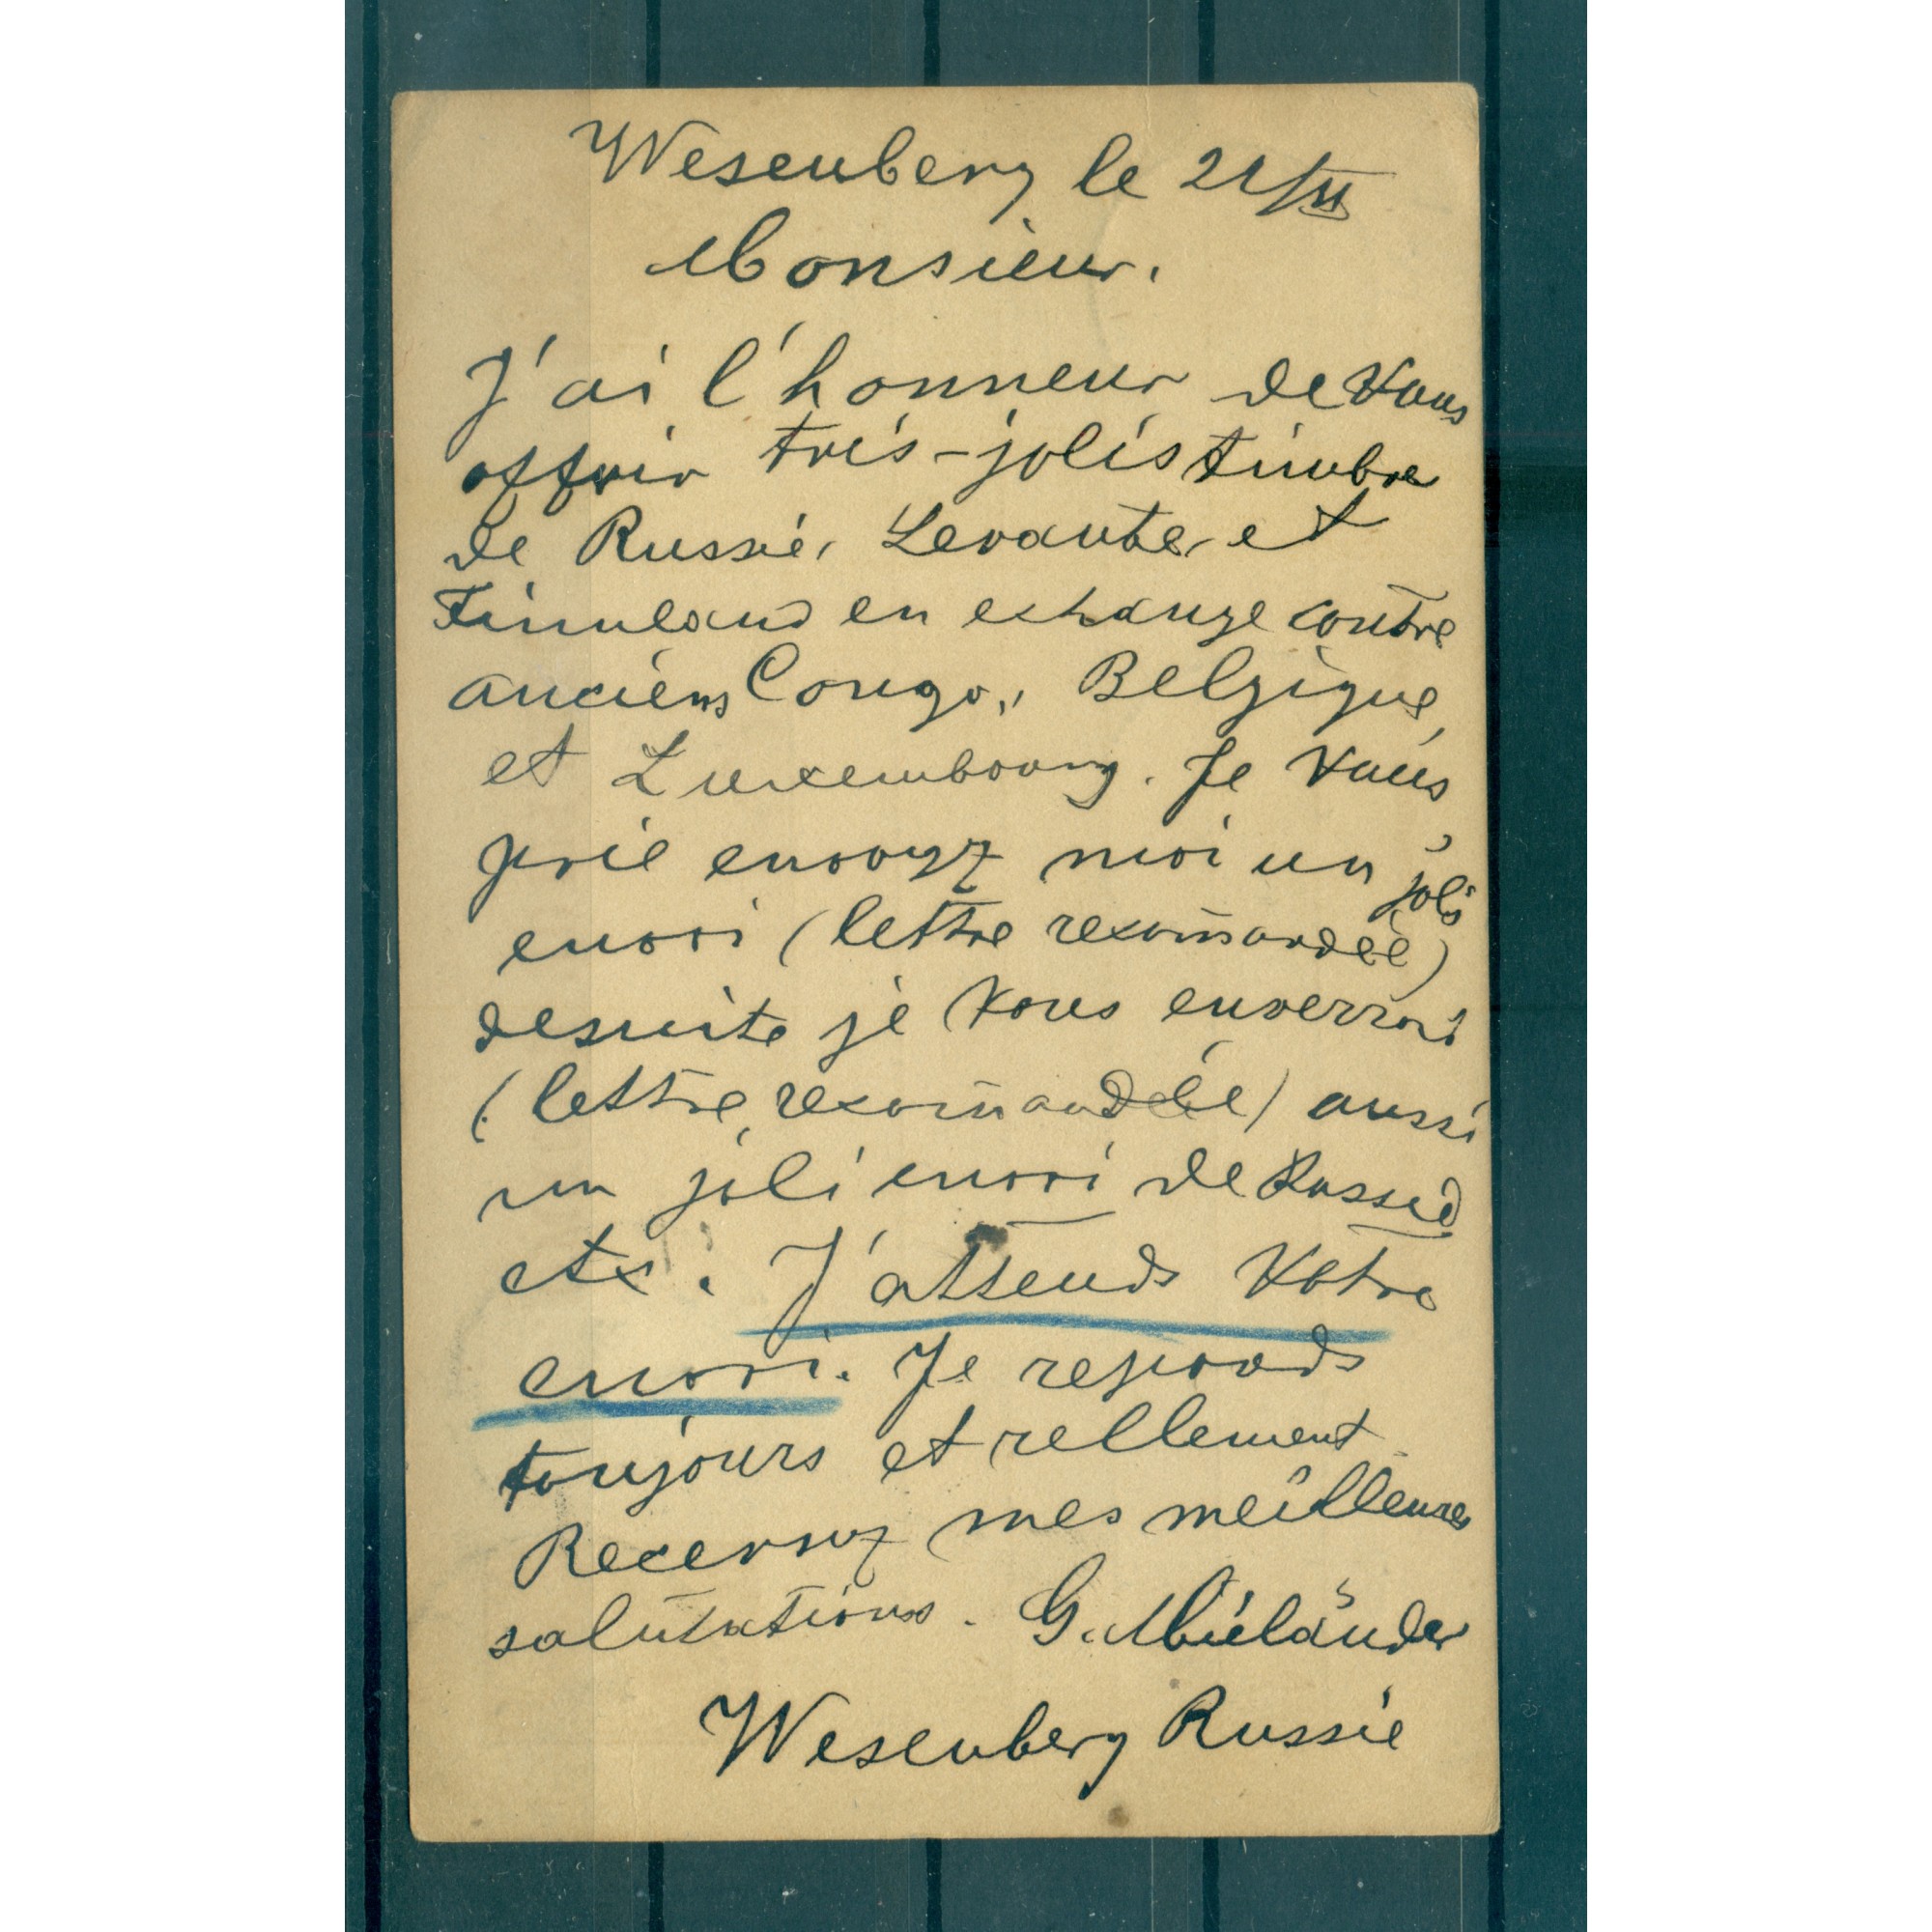 Wesenberg le 21/VI
Monsieur.
J'ai l'honneur de Vous
offrir trés-jolis timbre
de Russie, Levante et
Finnland en exhange contre
anciens Congo, Belgique,
et Luxembourg. Je Vous
prie envoyz moi un joli
envoi (lettre recom̄andée)
desuite je Vous enverrai
(lettre recom̄andée) aussi
un joli envoi de Russie
etc. J'attends Votre
envoi. Je reponds
toujours et rellement
Recevez mes meilleures
salutations. G. Mieländer
Wesenberg Russie